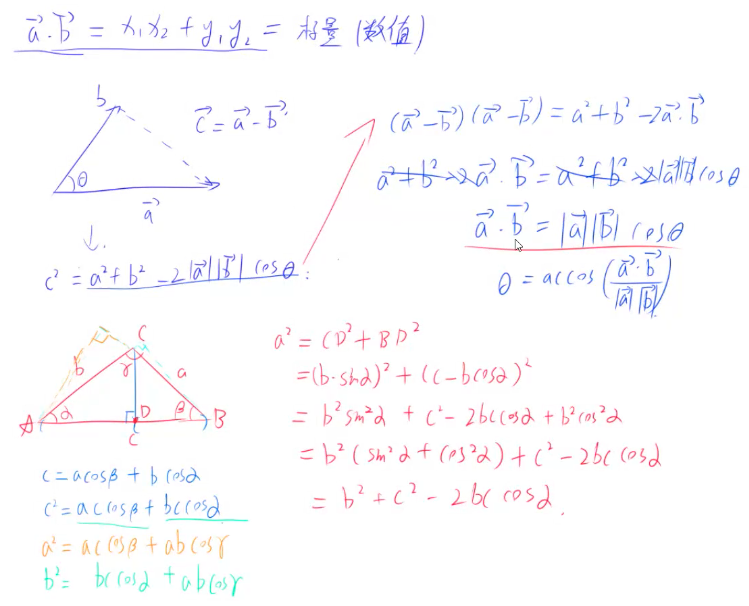 a⃗·b⃗ = x₁x₂ + y₁y₂ = 标量 (数值)
b
c⃗ = a⃗ - b⃗
θ
a⃗
c² = a² + b² - 2|a⃗||b⃗| cosθ
(a⃗ - b⃗)(a⃗ - b⃗) = a² + b² - 2a⃗·b⃗
a² + b² - 2a⃗·b⃗ = a² + b² - 2|a⃗||b⃗|cosθ
a⃗·b⃗ = |a⃗||b⃗| cosθ
θ = accos(a⃗·b⃗ / |a⃗||b⃗|)
C
b γ a
A α D β B
C
c = acosβ + bcosα
c² = accosβ + bccosα
a² = accosβ + abcosγ
b² = bccosα + abcosγ
a² = CD² + BD²
= (b·sinα)² + (c - bcosα)²
= b²sin²α + c² - 2bccosα + b²cos²α
= b²(sin²α + cos²α) + c² - 2bccosα
= b² + c² - 2bc cosα.